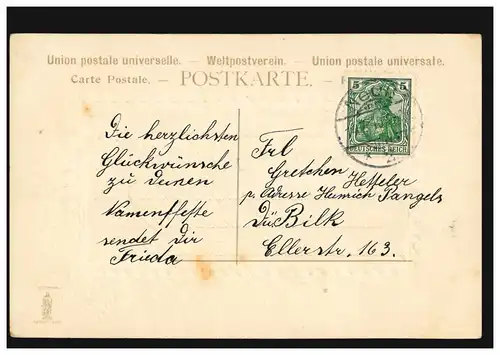 Union postale universelle. — Weltpostverein. — Union postale universale.
Carte Postale. — POSTKARTE. —
5 5
DEUTSCHES REICH
Die herzlichsten
Glückwünsche
zu deinen
Namenffeste
sendet dir
Frieda
Frl
Gretchen Hetteler
p. Adresse Heinrich Pangels
Dü Bilk
Ellerstr. 163.